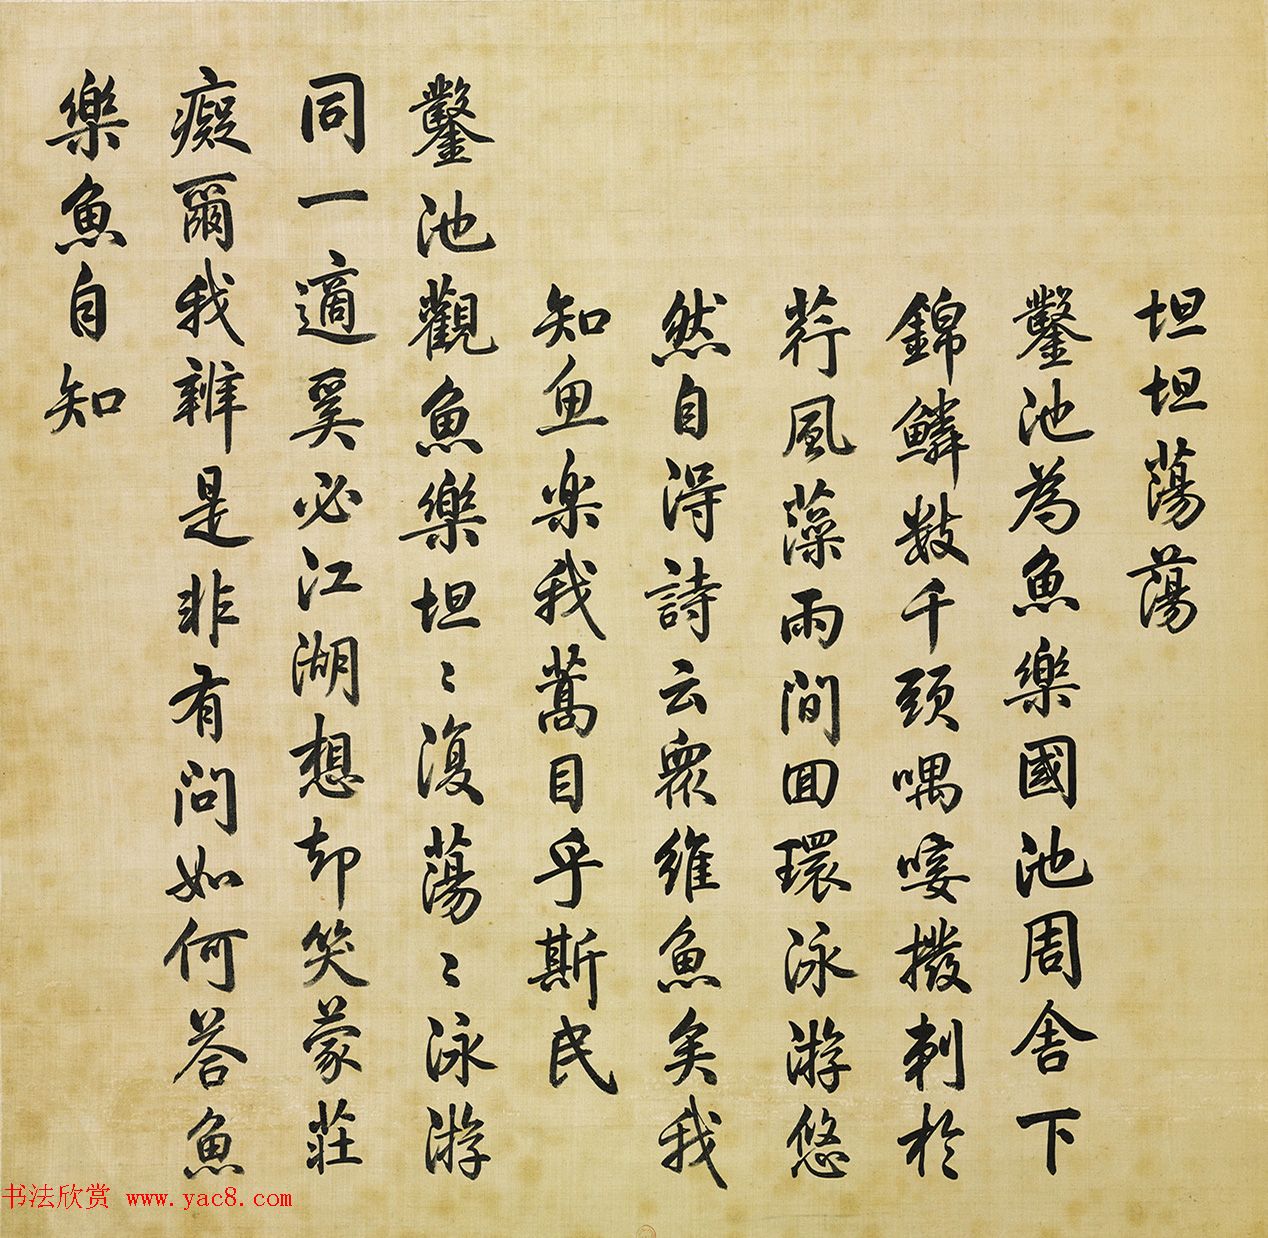 坦坦蕩蕩
鑿池為魚樂國池周舍下
錦鱗數千頭喁喽撥刺於
荇風藻雨間回環泳游悠
然自得詩云眾維魚矣我
知魚樂我蒿目乎斯民
鑿池觀魚樂坦〻復蕩〻泳游
同一適奚必江湖想却笑蒙莊
癡爾我辨是非有問如何答魚
樂魚自知
书法欣赏 www.yac8.com